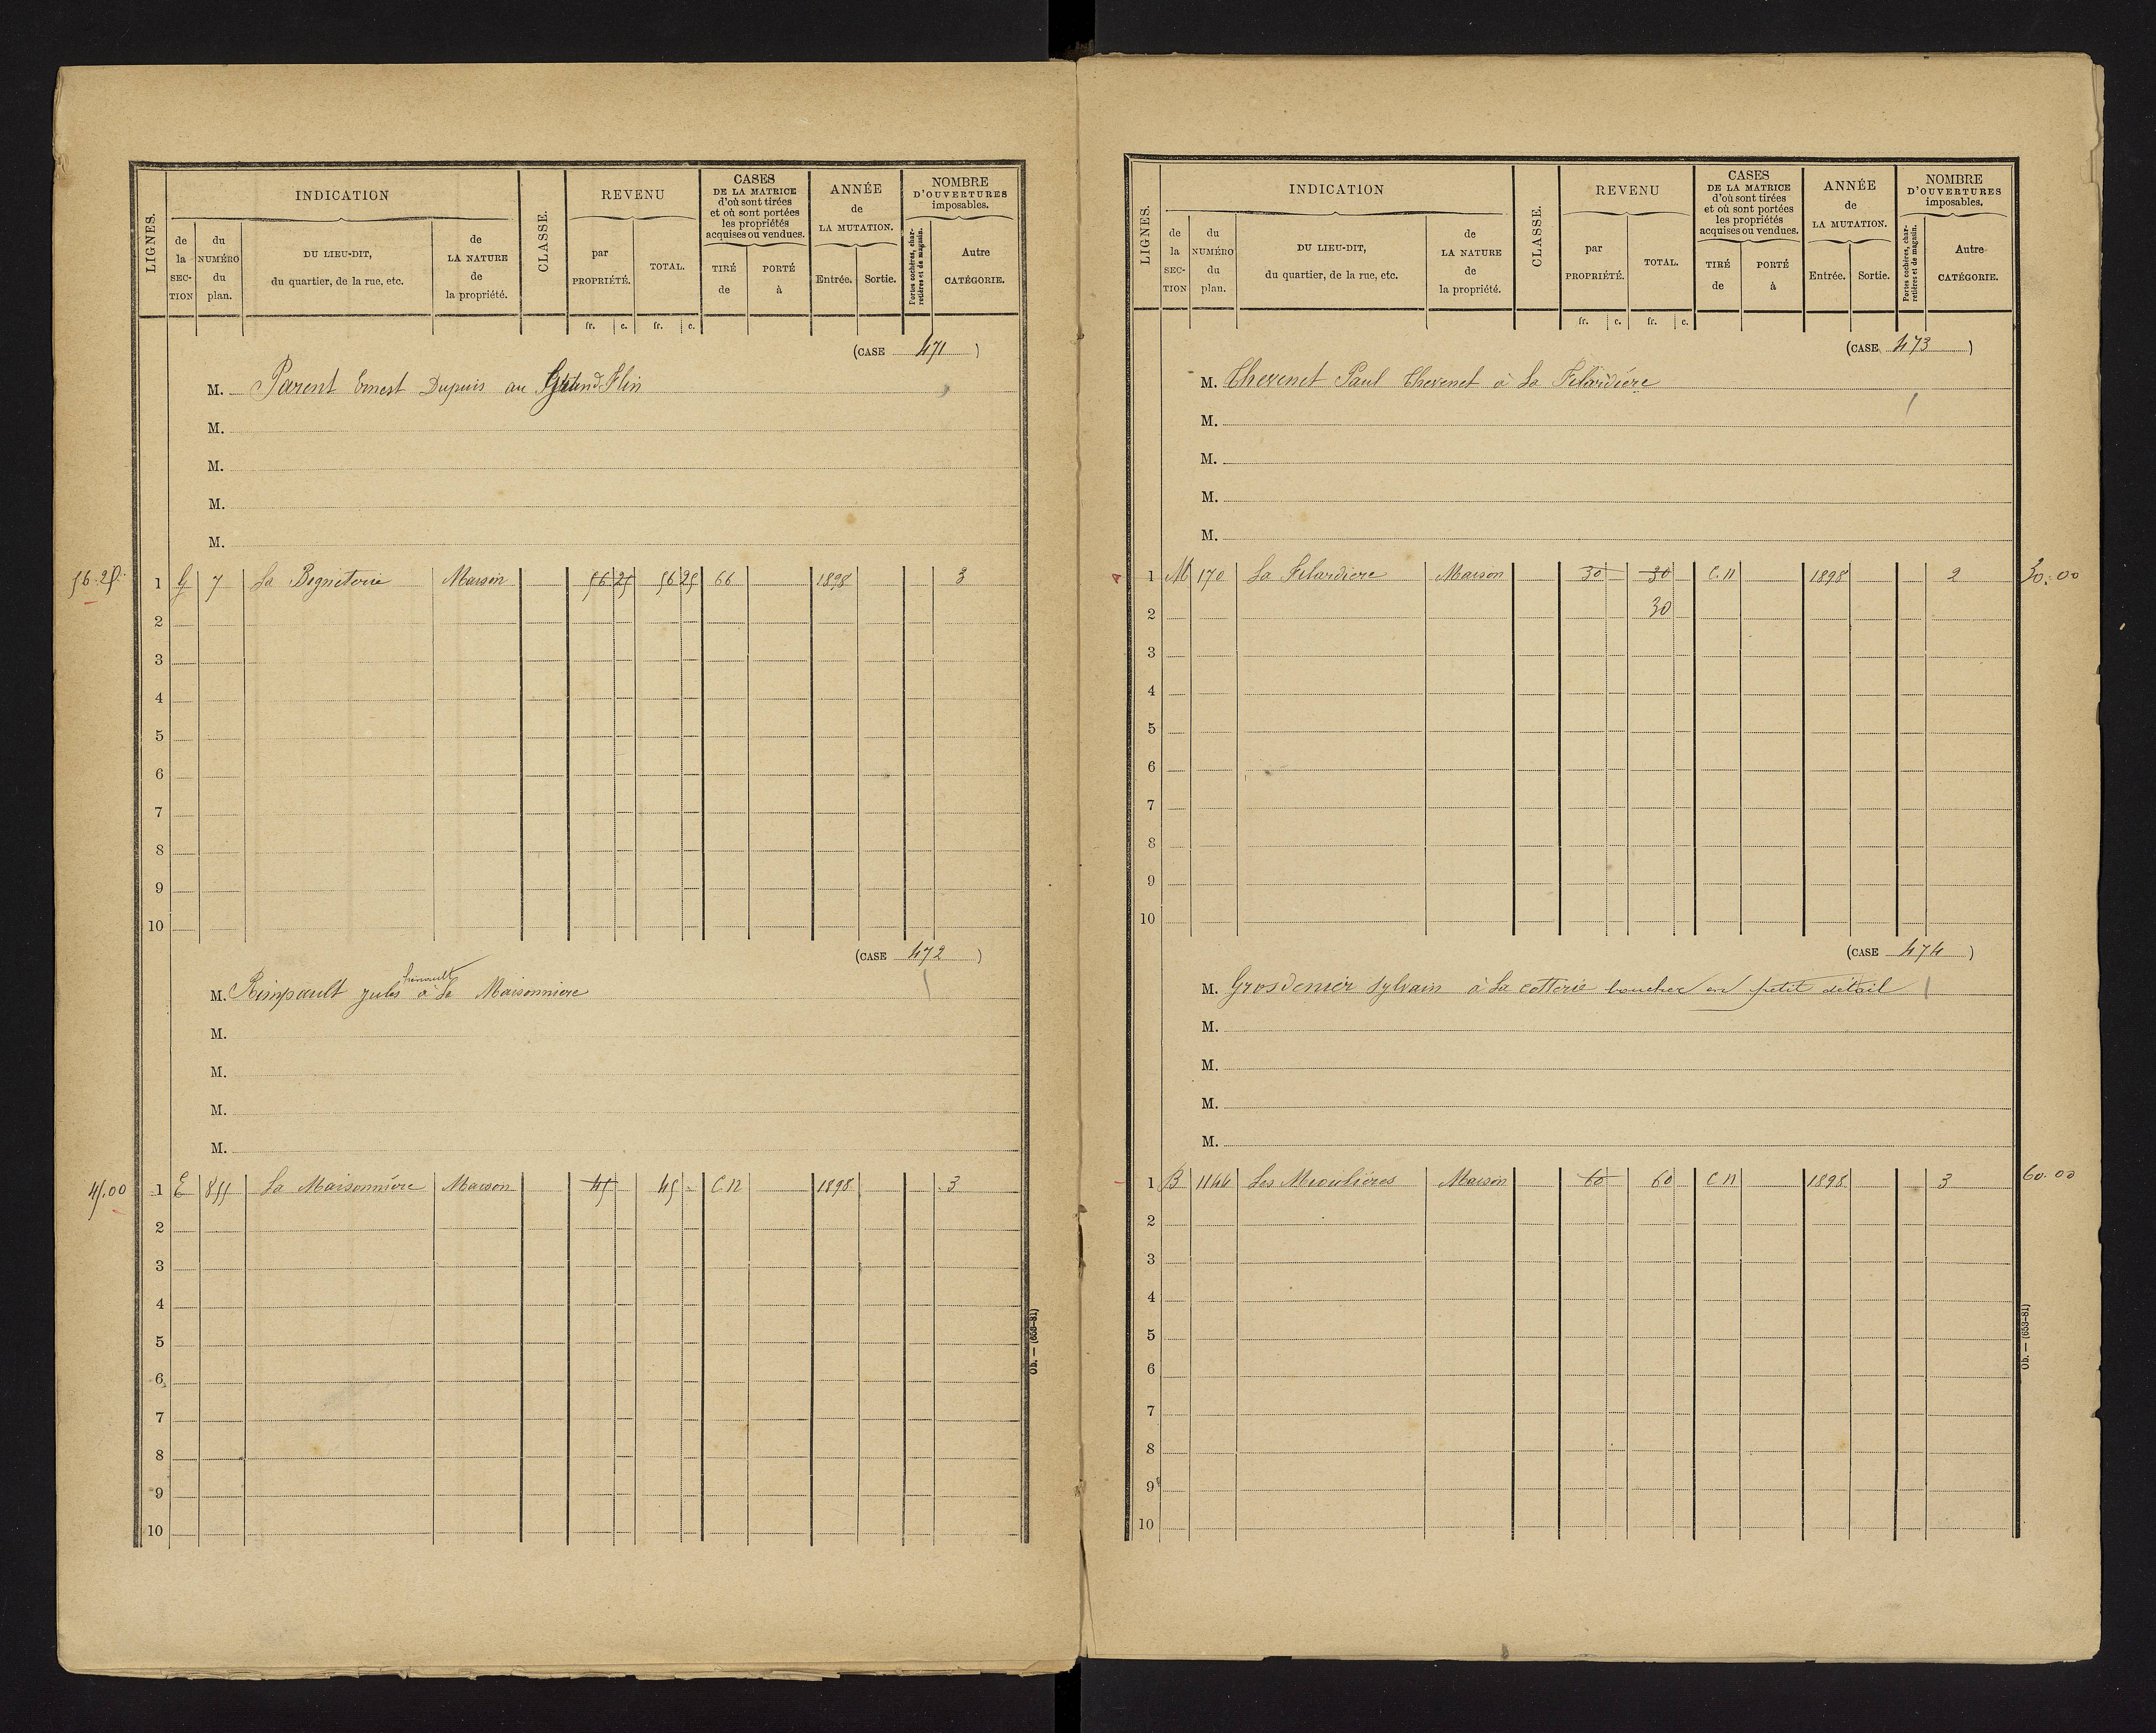 LIGNES.
INDICATION
de la SECTION
du NUMÉRO du plan.
DU LIEU-DIT, du quartier, de la rue, etc.
de LA NATURE de la propriété.
CLASSE.
REVENU
par PROPRIÉTÉ.
TOTAL.
fr. c. fr. c.
CASES DE LA MATRICE d'où sont tirées et où sont portées les propriétés acquises ou vendues.
TIRÉ de
PORTÉ à
ANNÉE de LA MUTATION.
Entrée.
Sortie.
NOMBRE D'OUVERTURES imposables.
Portes cochères, charretières et de magasin.
Autre CATÉGORIE.
(CASE 471)
M. Parent Ernest Dupuis au
M.
M.
M.
M.
56.25 1 G 7 La Maison 56 25 56 25 66 1898 3
2
3
4
5
6
7
8
9
10
(CASE 472)
M. Rimpault Jules à La Maisonniere
M.
M.
M.
M.
45.00 1 E 855 La Maisonnière Maison 45 45 C.N 1898 3
2
3
4
5
6
7
8
9
10
Ob. — (653-81)
LIGNES.
INDICATION
de la SECTION
du NUMÉRO du plan.
DU LIEU-DIT, du quartier, de la rue, etc.
de LA NATURE de la propriété.
CLASSE.
REVENU
par PROPRIÉTÉ.
TOTAL.
fr. c. fr. c.
CASES DE LA MATRICE d'où sont tirées et où sont portées les propriétés acquises ou vendues.
TIRÉ de
PORTÉ à
ANNÉE de LA MUTATION.
Entrée.
Sortie.
NOMBRE D'OUVERTURES imposables.
Portes cochères, charretières et de magasin.
Autre CATÉGORIE.
(CASE 473)
M. Thevenet Paul Thevenet à La Filardière
M.
M.
M.
M.
1 M 170 La Filardiere Maison 30 30 C.N 1898 2 30.00
2 30
3
4
5
6
7
8
9
10
(CASE 474)
M. Grosdenier Sylvain à La Cotterie boucher en petit détail
M.
M.
M.
M.
1 B 1144 Les Maison 60 60 C N 1898 3 60.00
2
3
4
5
6
7
8
9
10
Ob. — (653-81)